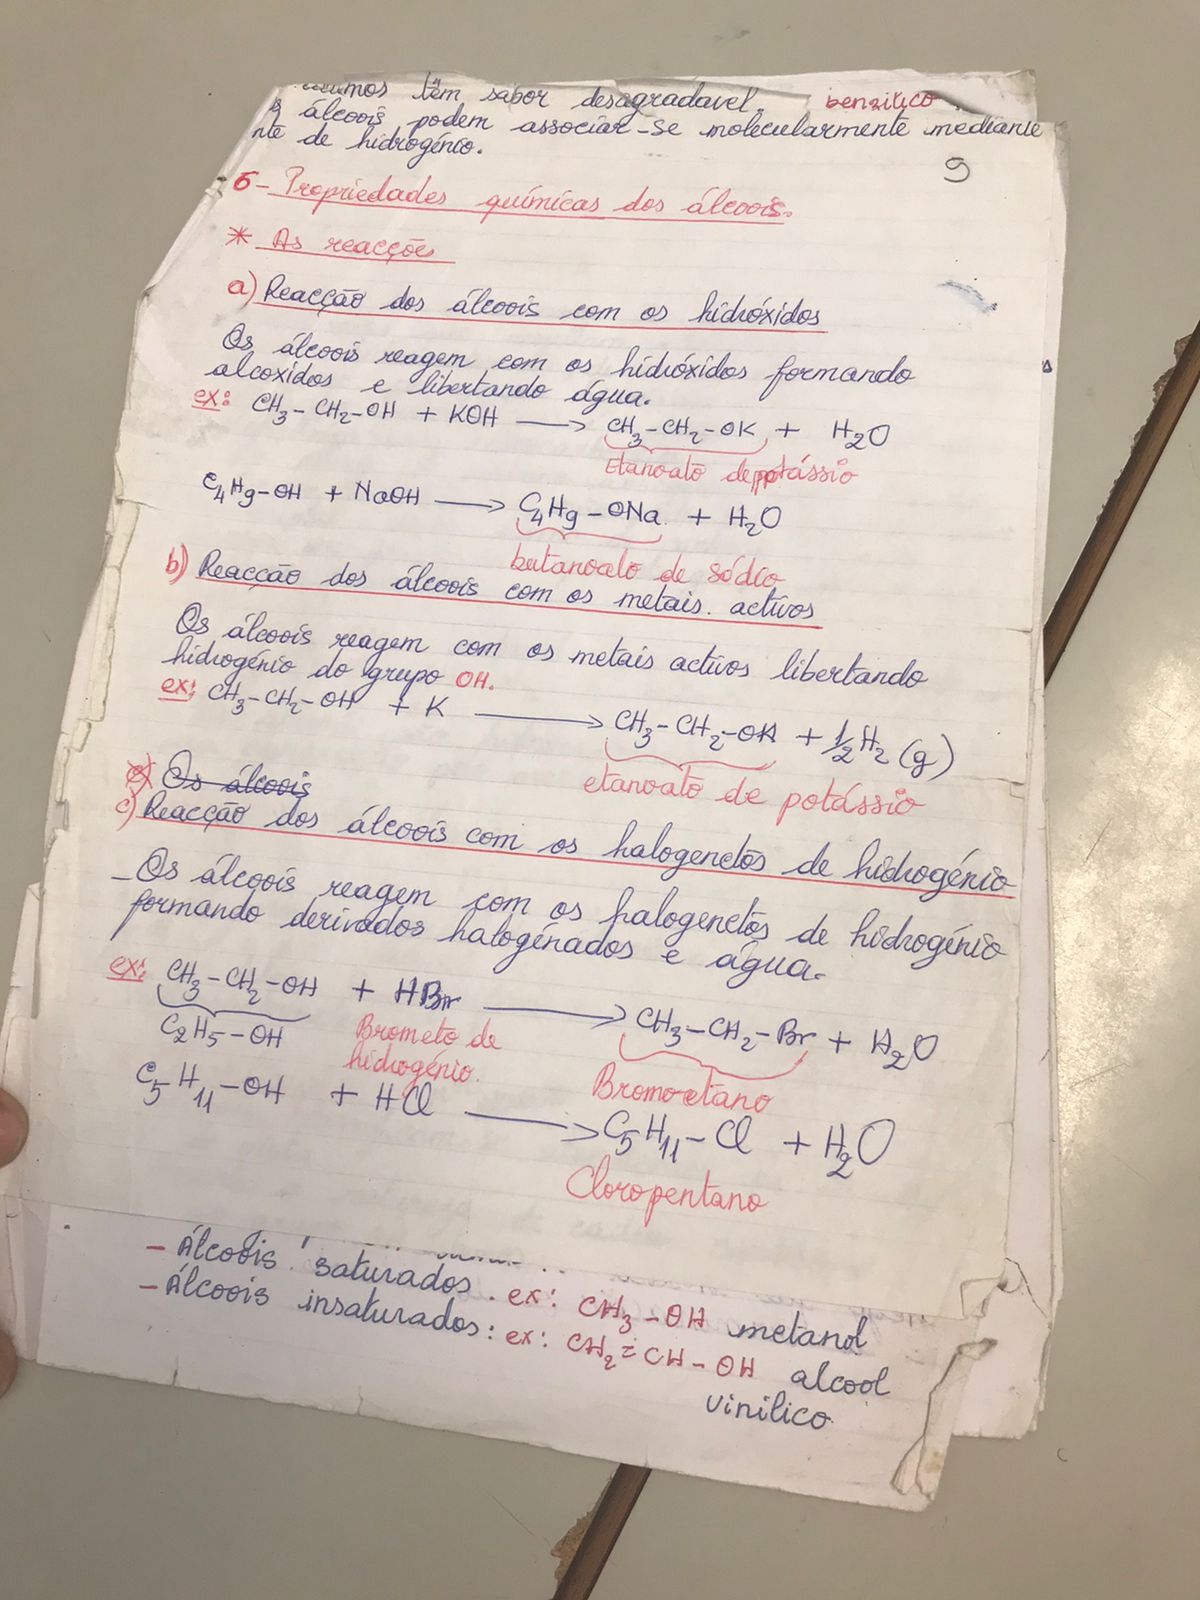 têm sabor desagradavel. benzilico.
álcoois podem associar-se molecularmente mediante
de hidrogénio.
9
6- Propriedades químicas dos álcoois.
* As reacções
a) Reacção dos álcoois com os hidróxidos
Os álcoois reagem com os hidróxidos formando
alcoxidos e libertando água.
ex: CH₃-CH₂-OH + KOH ⟶ CH₃-CH₂-OK + H₂O
Etanoato de potássio
C₄H₉-OH + NaOH ⟶ C₄H₉-ONa + H₂O
butanoato de sódio
b) Reacção dos álcoois com os metais activos
Os álcoois reagem com os metais activos libertando
hidrogénio do grupo OH.
ex: CH₃-CH₂-OH + K ⟶ CH₃-CH₂-OK + 1/2 H₂ (g)
etanoato de potássio
Os álcoois
c) Reacção dos álcoois com os halogenetos de hidrogénio
- Os álcoois reagem com os halogenetos de hidrogénio
formando derivados halogénados e água.
ex: CH₃-CH₂-OH + HBr ⟶ CH₃-CH₂-Br + H₂O
C₂H₅-OH Brometo de hidrogénio. Bromoetano
C₅H₁₁-OH + HCl ⟶ C₅H₁₁-Cl + H₂O
Cloropentano
- Álcoois saturados. ex: CH₃-OH metanol
- Álcoois insaturados: ex: CH₂=CH-OH alcool
vinilico